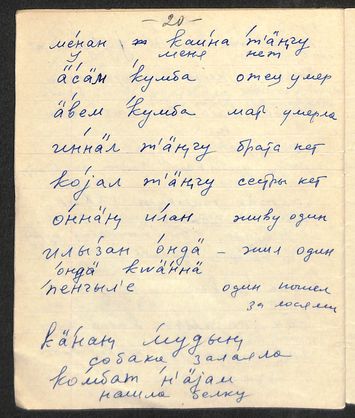 – 20 –
ме́нан ж каи́на т'ӓ́ӊгу
у меня нет
ӓ́сӓм ку́мба отец умер
ӓ́вем ку́мба мать умерла
ти́ннӓл т'ӓ́ӊгу брата нет
ко́јал т'ӓ́ӊгу сестры нет
о́ннӓӊ и́лан живу один
илы́зан о́ндӓ – жил один
о́ндӓ кwӓ́ннӓ
пе́нгыле один пошел
за лосями
кӓ́наӊ му́дыӊ
собака залаяла
ко́мбат н'ӓ́јам
нашла белку